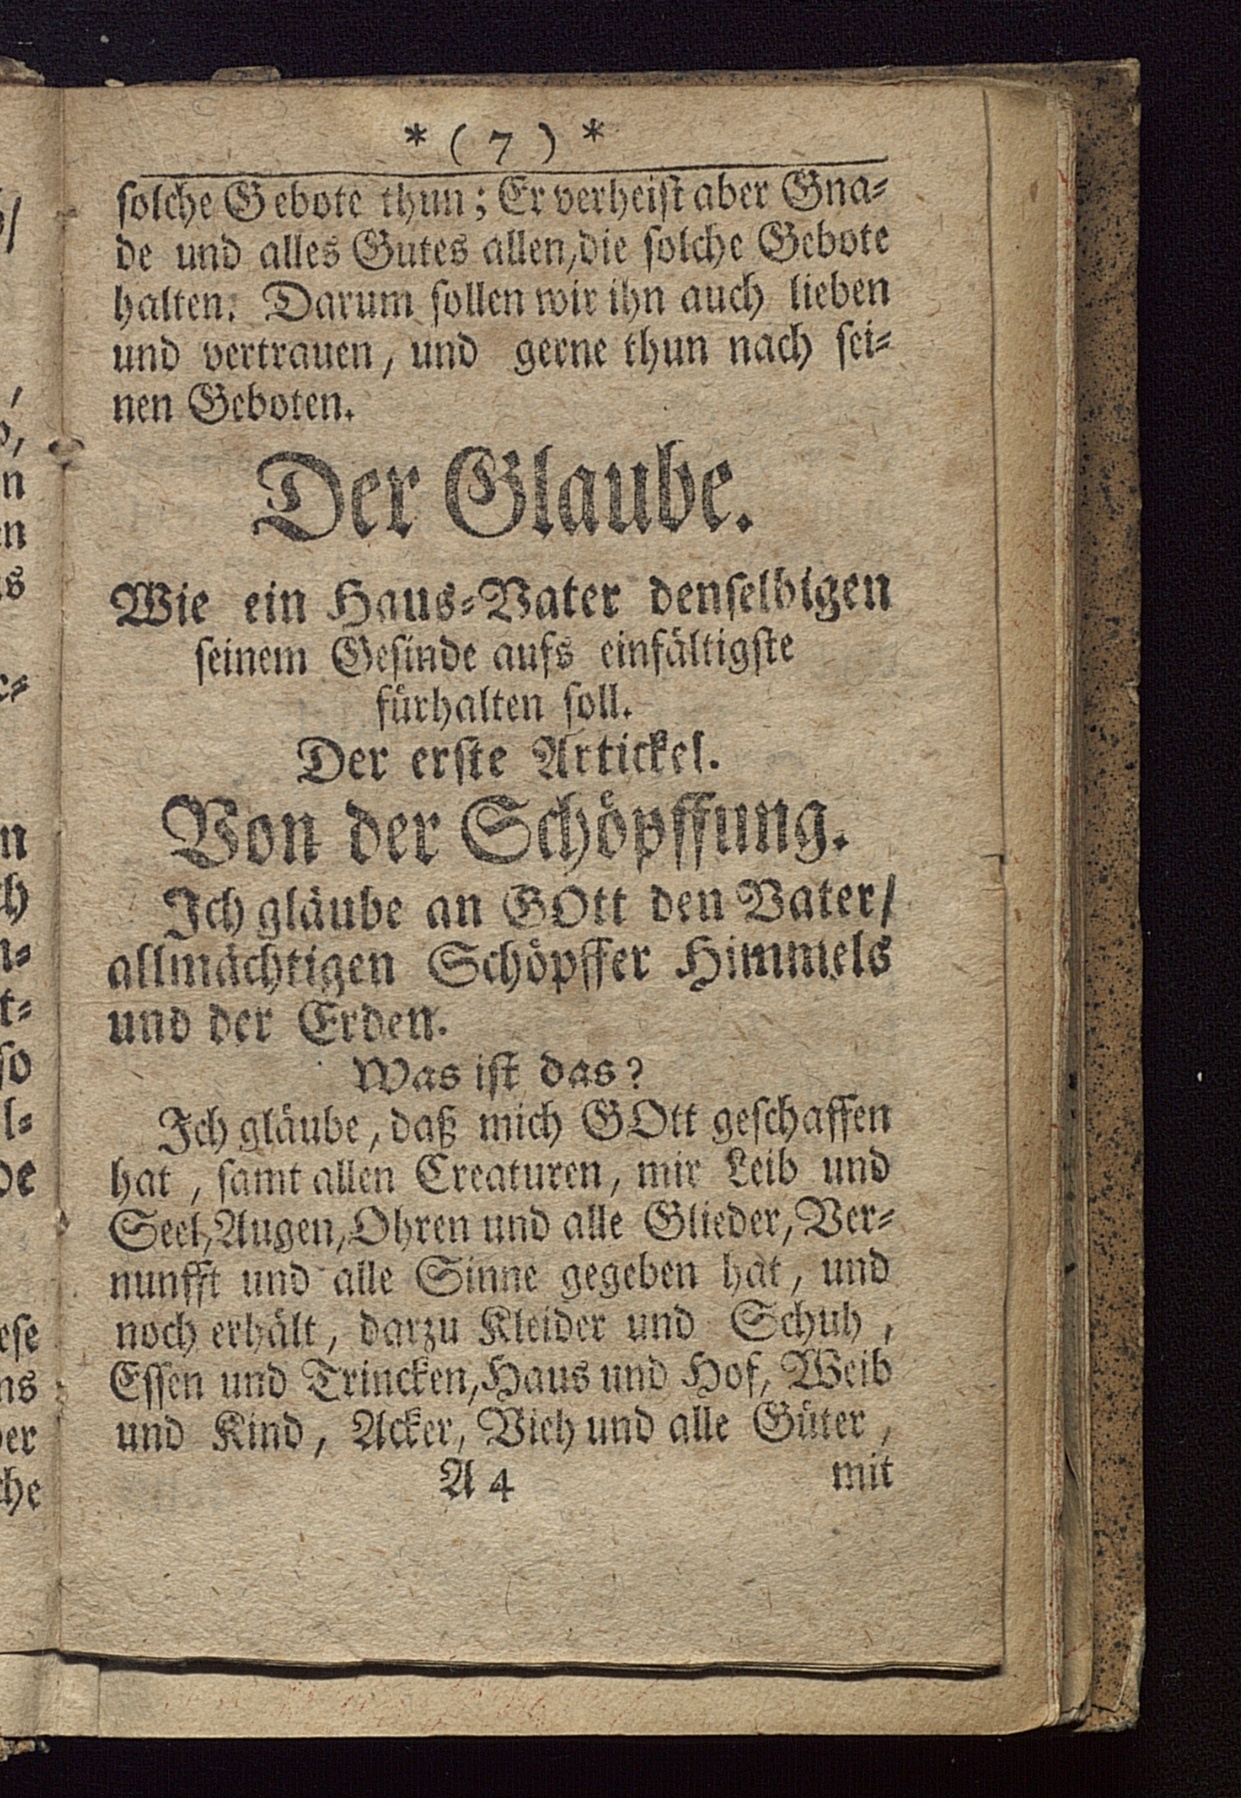 * ( 7 ) *
solche Gebote thun; Er verheist aber Gna-
de und alles Gutes allen, die solche Gebote
halten. Darum sollen wir ihn auch lieben
und vertrauen, und gerne thun nach sei-
nen Geboten.
Der Glaube.
Wie ein Haus-Vater denselbigen
seinem Gesinde aufs einfältigste
fürhalten soll.
Der erste Artickel.
Von der Schöpffung.
Ich gläube an GOtt den Vater/
allmächtigen Schöpffer Himmels
und der Erden.
Was ist das?
Ich gläube, daß mich GOtt geschaffen
hat, samt allen Creaturen, mir Leib und
Seel, Augen, Ohren und alle Glieder, Ver-
nunfft und alle Sinne gegeben hat, und
noch erhält, darzu Kleider und Schuh,
Essen und Trincken, Haus und Hof, Weib
und Kind, Acker, Vieh und alle Güter,
A 4 mit